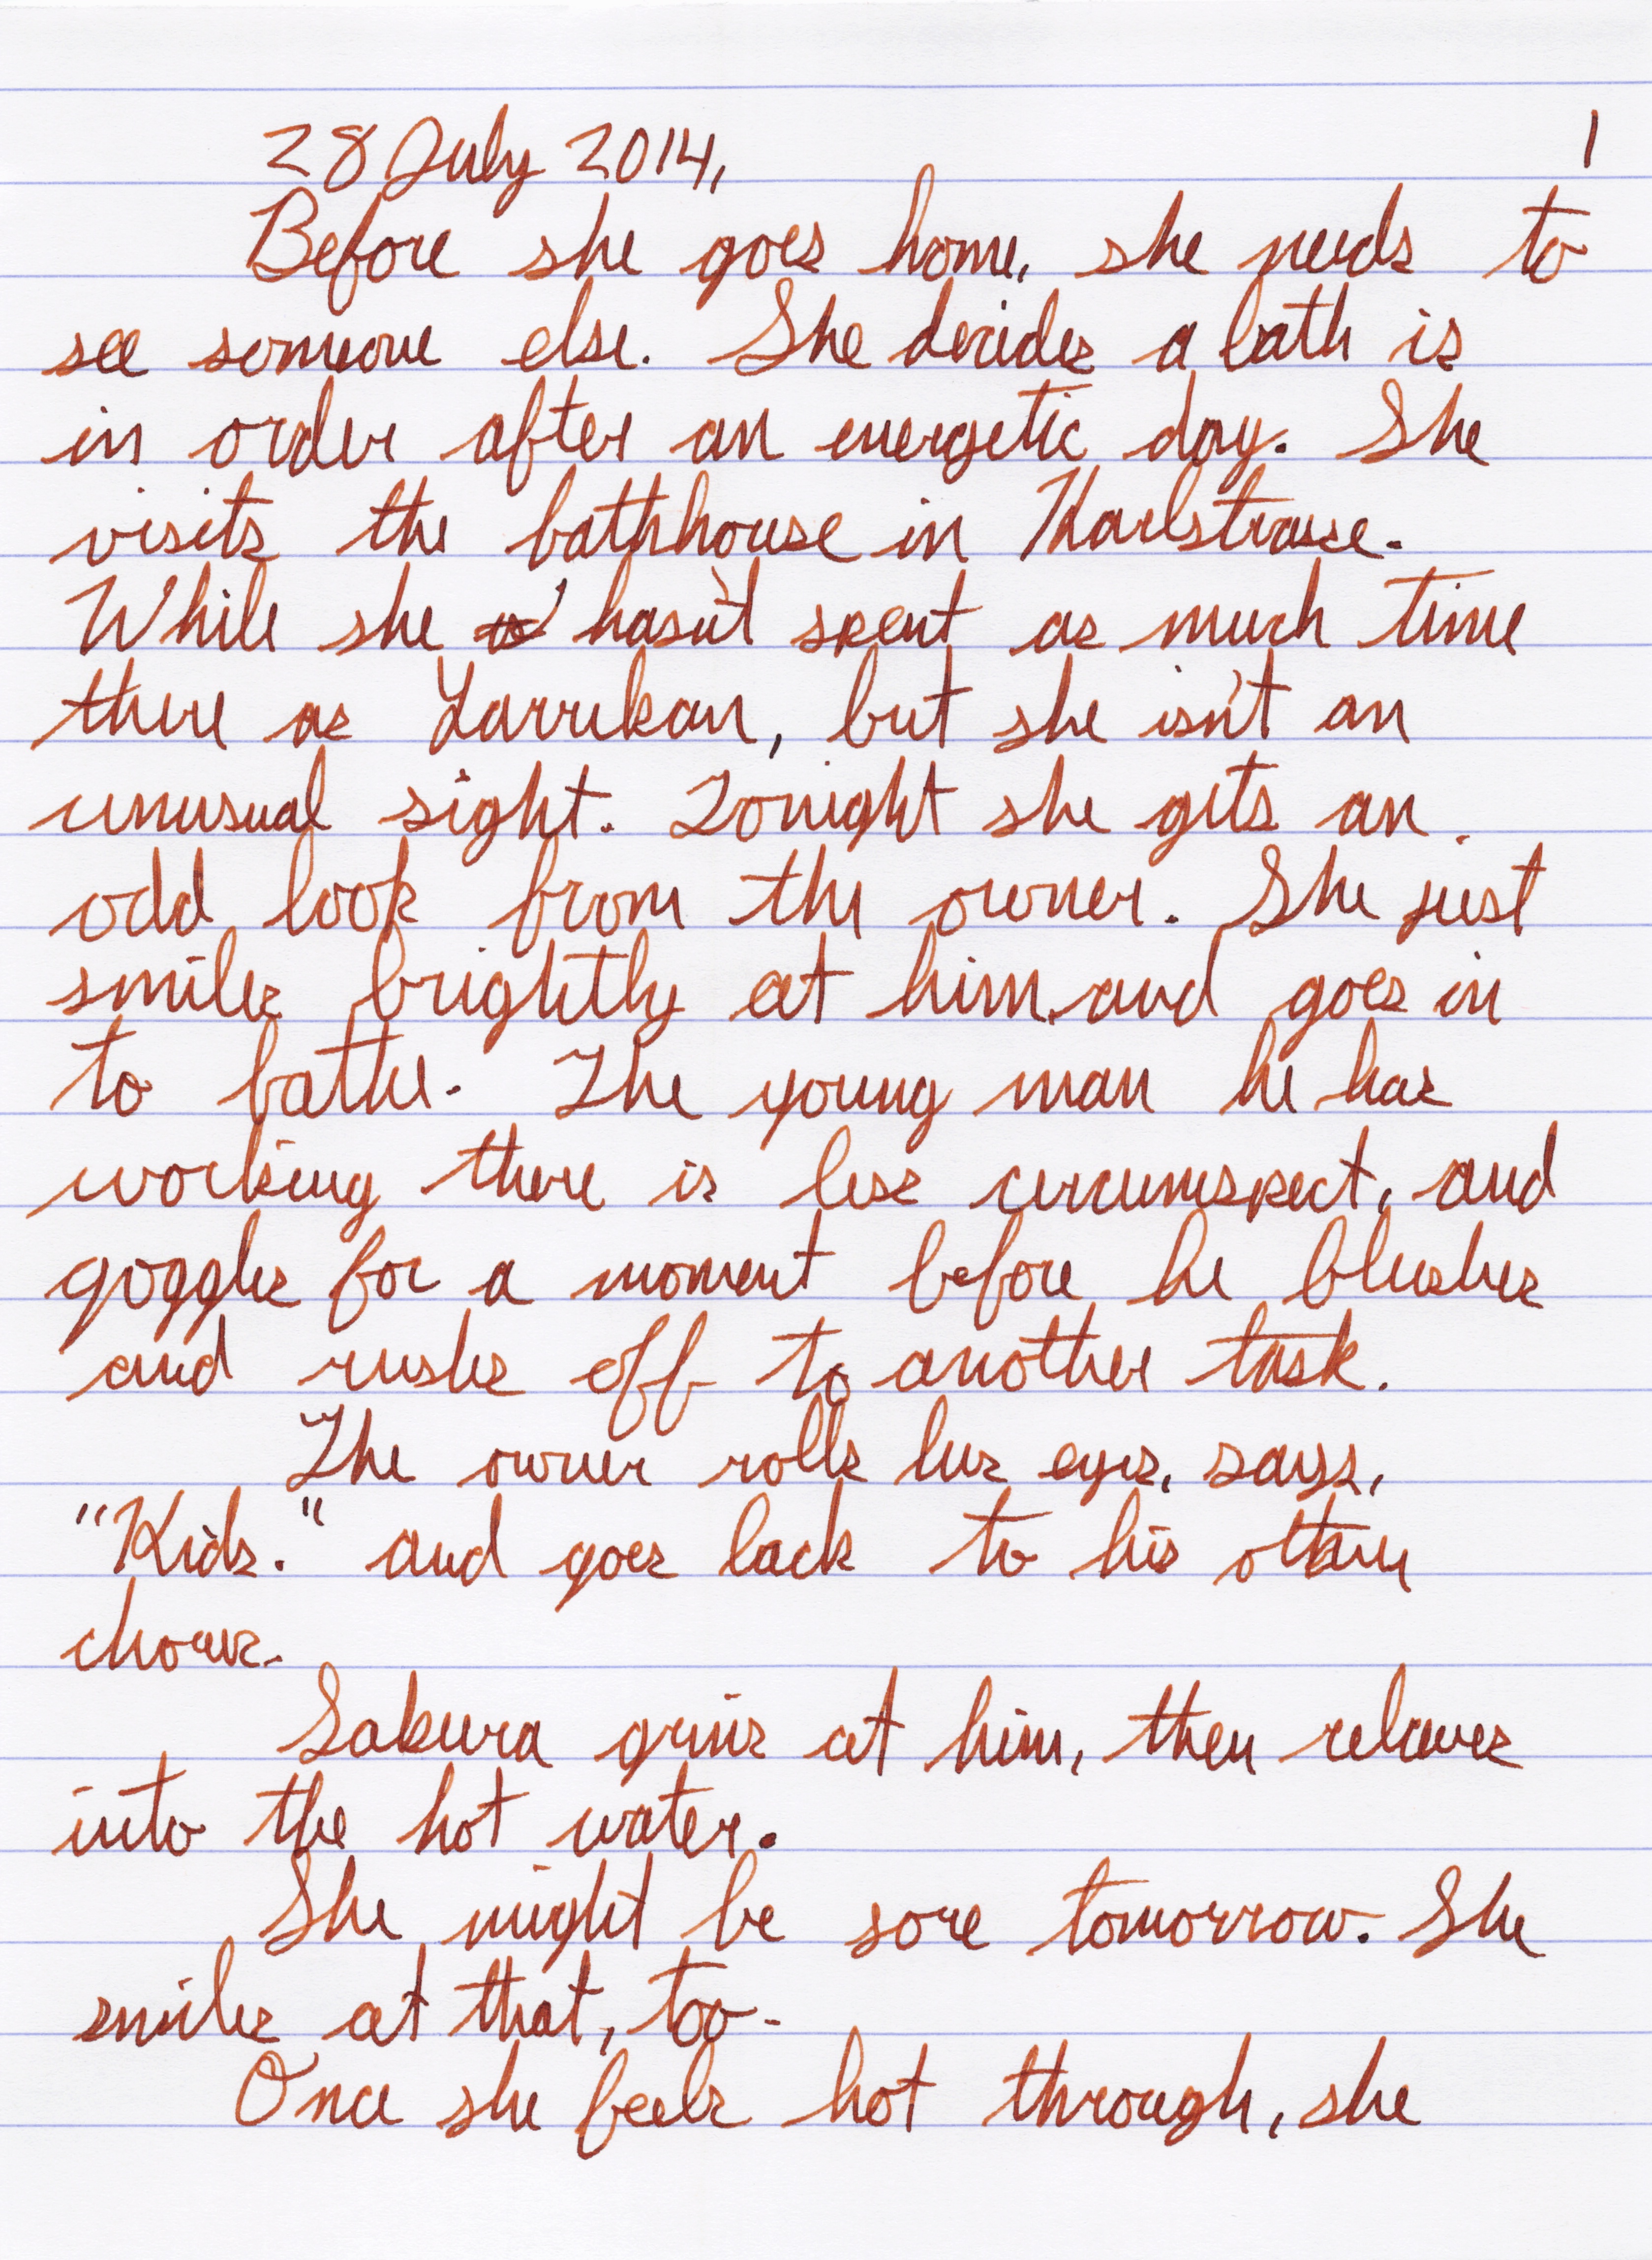 28 July 2014,
1
Before she goes home, she needs to
see someone else. She decides a bath is
in order after an energetic day. She
visits the bathhouse in Karlstrasse.
While she hasn't spent as much time
there as Yarrekan, but she isn't an
unusual sight. Tonight she gets an
odd look from the owner. She just
smiles brightly at him, and goes in
to bathe. The young man he has
working there is less circumspect, and
goggles for a moment before he blushes
and rushes off to another task.
The owner rolls his eyes, says,
"Kids." and goes back to his other
chores.
Sakura grins at him, then relaxes
into the hot water.
She might be sore tomorrow. She
smiles at that, too.
Once she feels hot through, she